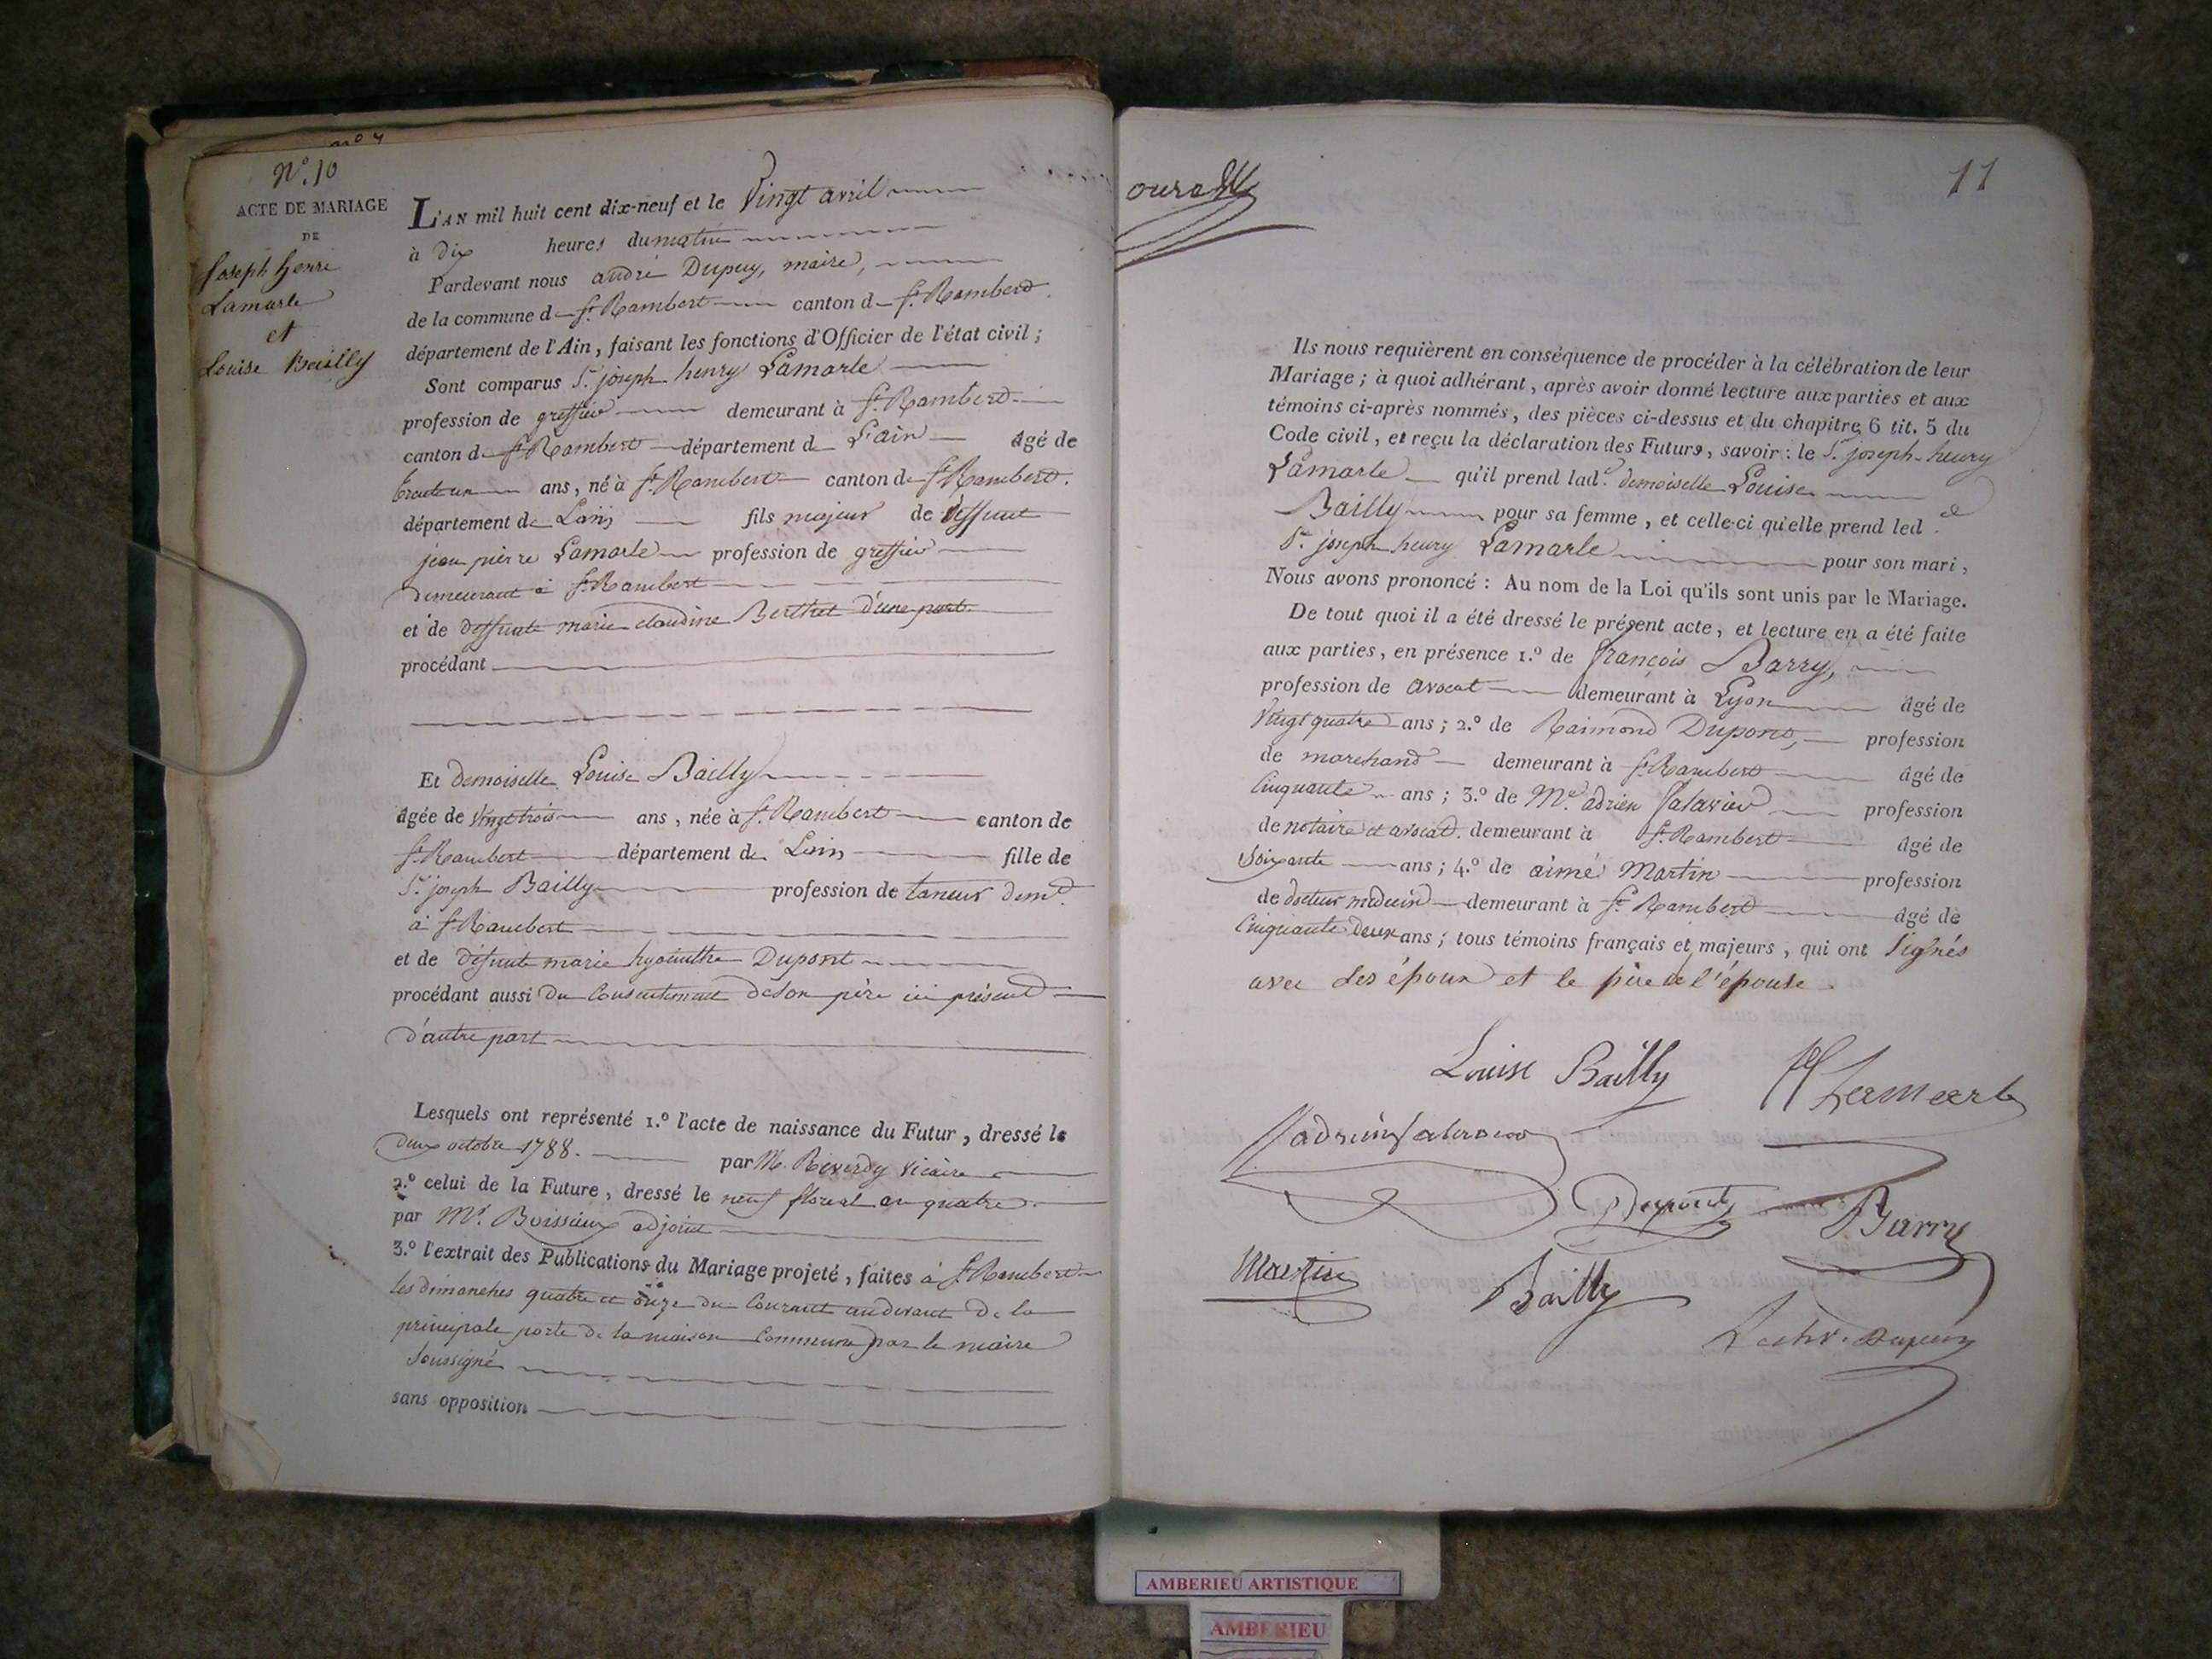 N.º 10
ACTE DE MARIAGE
DE
Joseph henri
Lamarle
et
Louise Bailly
L'AN mil huit cent dix-neuf et le Vingt avril
à dix heures du matin
Pardevant nous andré Dupuy, maire,
de la commune d St. Rambert canton d St. Rambert
département de l'Ain, faisant les fonctions d'Officier de l'état civil ;
Sont comparus Sr. joseph henry Lamarle
profession de greffier demeurant à St. Rambert
canton d St. Rambert département d L'ain âgé de
trente un ans, né à St. Rambert canton de St. Rambert.
département de Lain fils majeur de deffunt
jean pierre Lamarle profession de greffier
demeurant à St. Rambert
et de deffunte marie claudine Berthet d'une part.
procédant
Et demoiselle Louise Bailly
âgée de Vingt trois ans, née à St. Rambert canton de
St. Rambert département de Lain fille de
Sr. joseph Bailly profession de taneur demt.
à St. Rambert
et de défunte marie hyacinthe Dupont
procédant aussi du Consentement de son père ici présent
d'autre part
Lesquels ont représenté 1.º l'acte de naissance du Futur, dressé le
deux octobre 1788. par M. Reverdy vicaire
2.º celui de la Future, dressé le neuf floreal an quatre
par Mr. Boissieux adjoint
3.º l'extrait des Publications du Mariage projeté, faites à St. Rambert
les dimanches quatre et onze du Courant audevant de la
principale porte de la maison Commune par le maire
soussigné
sans opposition
11
Ils nous requièrent en conséquence de procéder à la célébration de leur
Mariage ; à quoi adhérant, après avoir donné lecture aux parties et aux
témoins ci-après nommés, des pièces ci-dessus et du chapitre 6 tit. 5 du
Code civil, et reçu la déclaration des Futurs, savoir : le Sr. joseph-henry
Lamarle qu'il prend lad.e demoiselle Louise
Bailly pour sa femme, et celle-ci qu'elle prend led
Sr. joseph henry Lamarle pour son mari,
Nous avons prononcé : Au nom de la Loi qu'ils sont unis par le Mariage.
De tout quoi il a été dressé le présent acte, et lecture en a été faite
aux parties, en présence 1.º de françois Barry,
profession de avocat demeurant à Lyon âgé de
Vingt quatre ans ; 2.º de Raimond Dupont, profession
de marchand demeurant à St. Rambert âgé de
Cinquante ans ; 3.º de Me. adrien profession
de notaire et avocat. demeurant à St. Rambert âgé de
Soixante ans ; 4.º de aimé Martin profession
de docteur médecin demeurant à St. Rambert âgé de
Cinquante deux ans ; tous témoins français et majeurs, qui ont signés
avec les époux et le père de l'épouse.
Louise Bailly Lamarle
Dupont Barry
Martin Bailly
Dupuy
AMBERIEU ARTISTIQUE
AMBERIEU